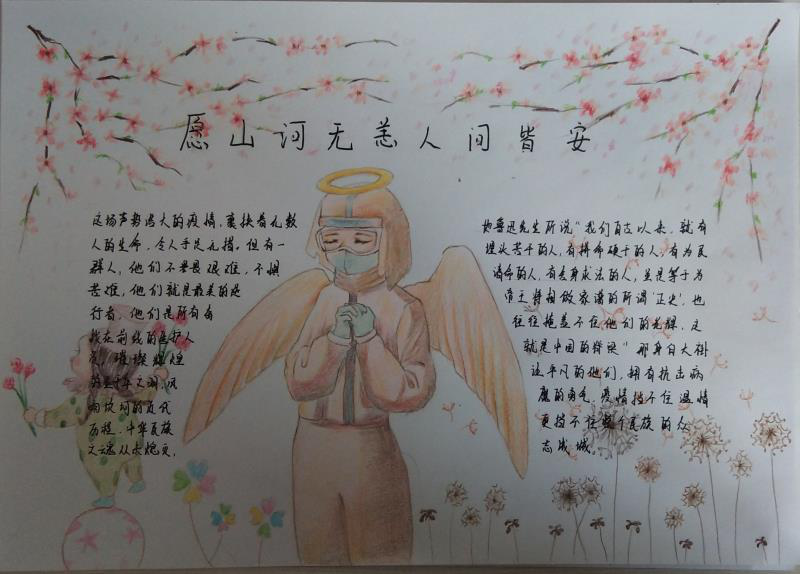 愿山河无恙人间皆安
这场声势浩大的疫情，裹挟着无数
人的生命，令人手足无措。但有一
群人，他们不畏艰难，不惧
苦难，他们就是最美的逆
行者，他们是所有奋
战在前线的医护人
员，璀璨辉煌
的五千年文明，风
雨坎坷的百代
历程，中华民族
文魂从未熄灭。
如鲁迅先生所说"我们自古以来，就有
埋头苦干的人，有拼命硬干的人，有为民
请命的人，有舍身求法的人，虽是等于为
帝王将相做家谱的所谓'正史'，也
往往掩盖不住他们的光辉，这
就是中国的脊梁"那身白大褂
这平凡的他们，拥有抗击病
魔的勇气，疫情挡不住温情
更挡不住整个民族的众
志成城。